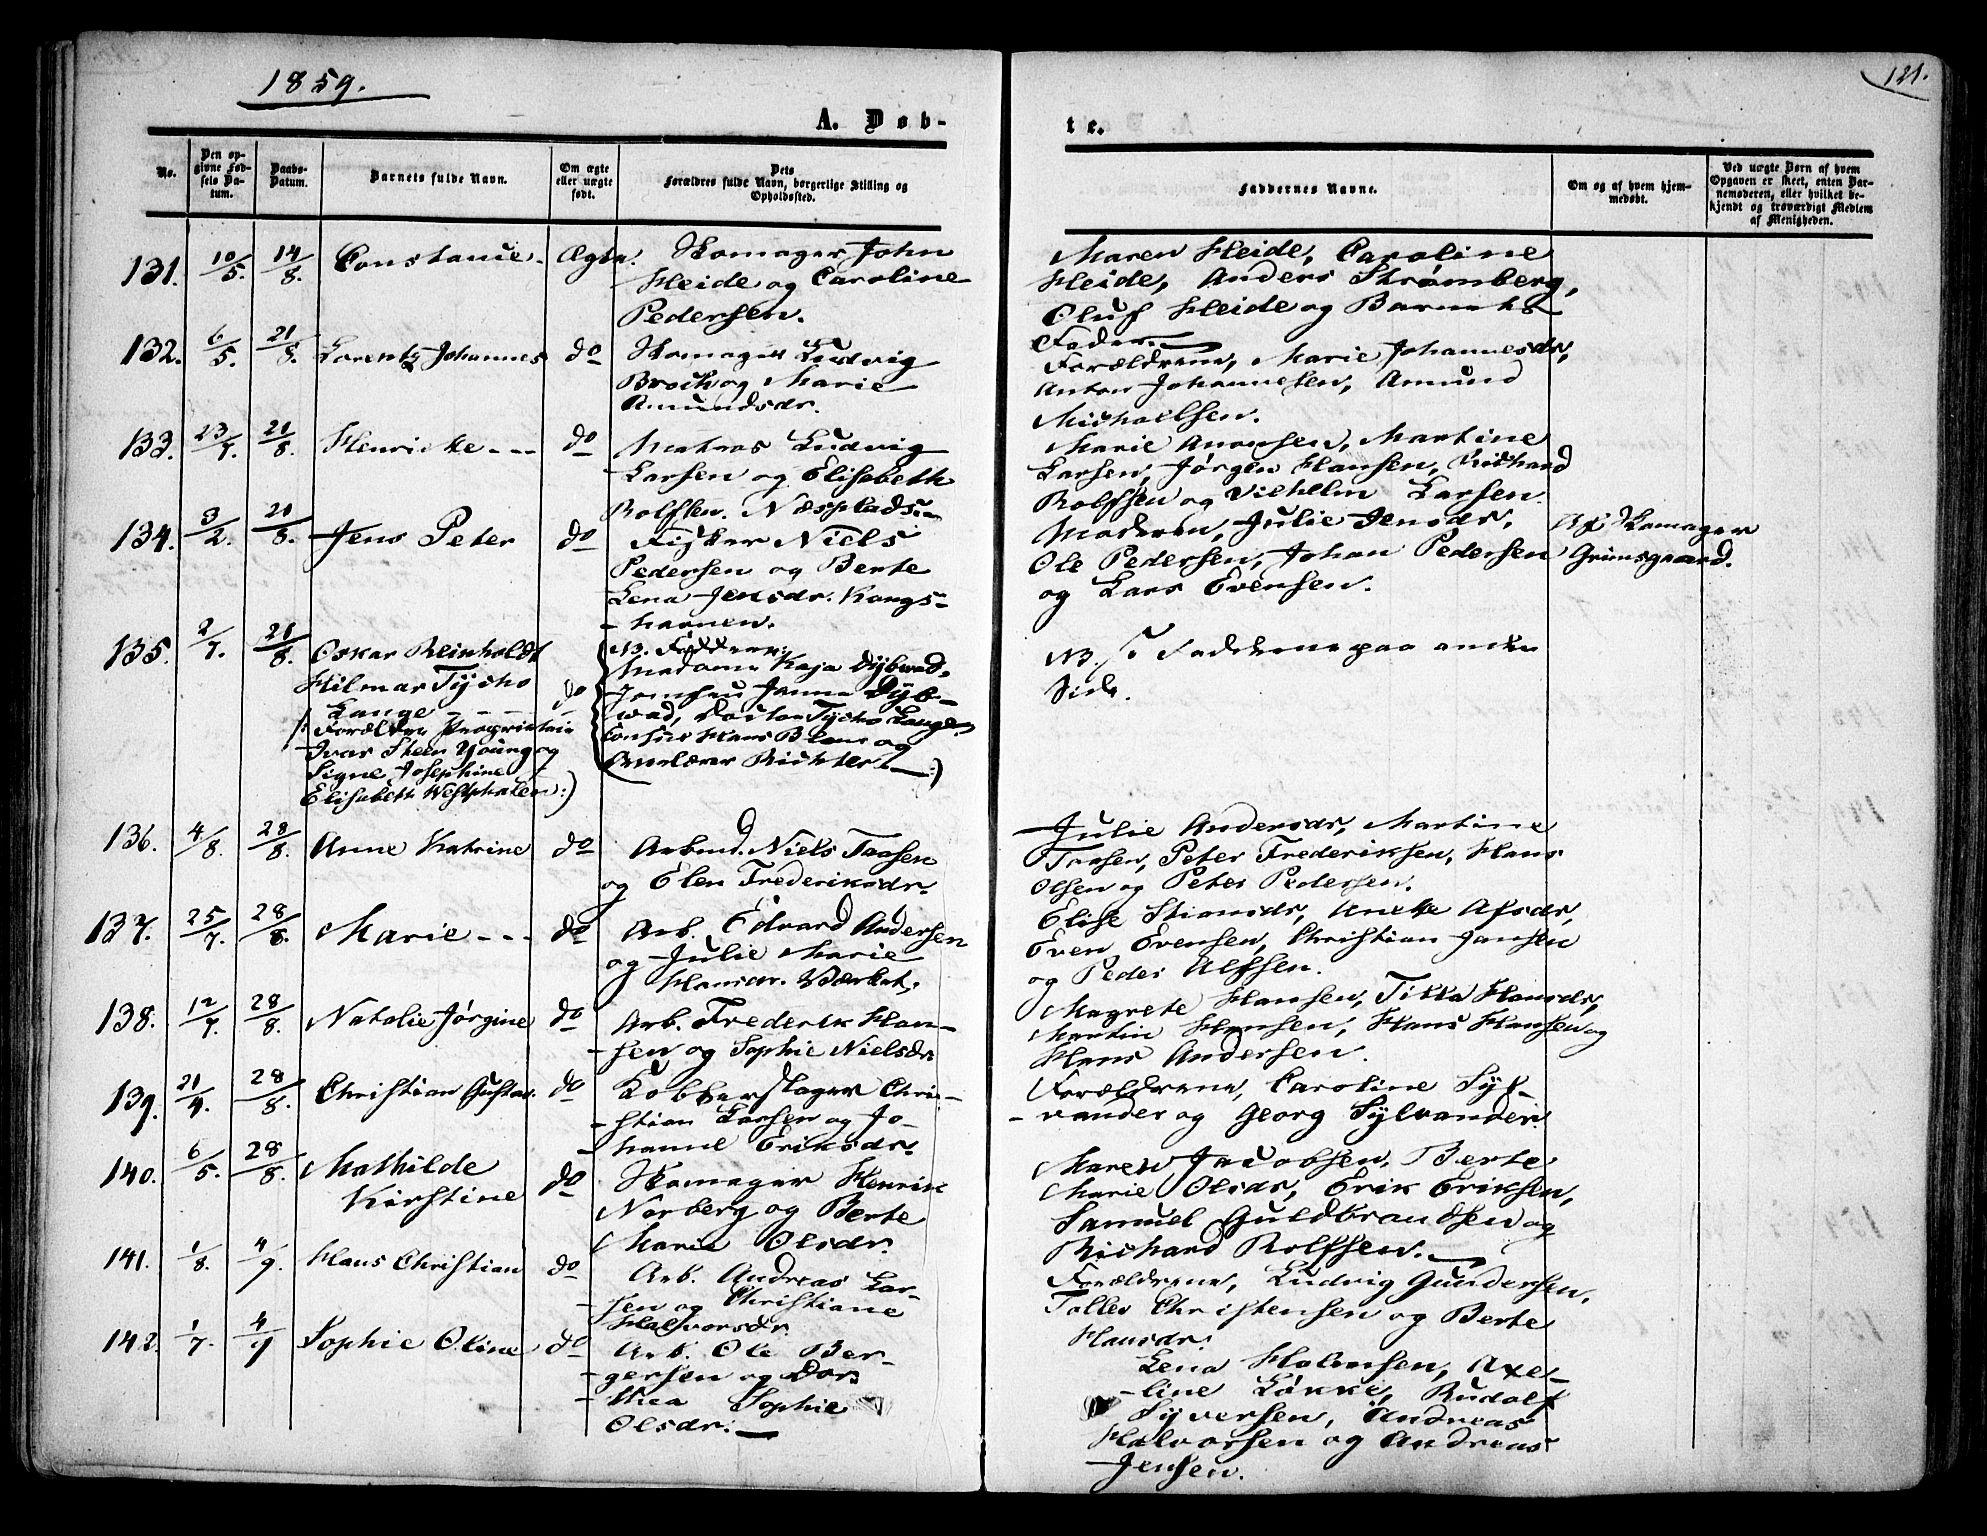 1859.
121.
A. Døb-
te.
No.
Den op-
givne Fød-
sels Da-
tum.
Daabs-
Datum.
Barnets fulde Navn.
Om ægte
eller uægte
født.
Dets
Forældres fulde Navn, borgerlige Stilling og
Opholdssted.
Faddernes Navne.
Om og af hvem hjem-
medøbt.
Ved uægte Børn af hvem
Opgaven er skeet, enten Bar-
nemoderen, eller hvilket be-
kjendt og troværdigt Medlem
af Menigheden.
131. 10/5. 14/8. Constance. Ægte. Skomager John
Heide og Caroline
Pedersen.
Maren Heide, Caroline
Heide, Anders Strømberg,
Oluf Heide og Barnets
Fader.
132. 6/5. 21/8. Lorentz Johannes do Skomager Ludvig
Broch og Marie
Amundsdr.
Forældrene, Marie Johannesdr,
Anton Johannesen, Amund
Michaelsen.
133. 23/7. 21/8. Henrikke--- do Matros Ludvig
Larsen og Elisabeth
Rolfsen. Næsplads.
Marie Aronsen, Martine
Larsen, Jørgen Hansen, Richard
Rolfsen og Vilhelm Larsen.
134. 3/2. 21/8. Jens Peter do Fisker Niels
Pedersen og Berte
Lena Jensdr. Kongs-
havnen.
Moderen, Julie Jensdr.
Ole Pedersen, Johan Pedersen
og Lars Evensen.
Af Skomager
Grimsgaard.
135. 2/7. 21/8. Oskar Reinholdt
Hilmar Tycho
Lange
(: Forældre Proprietair
Ivar Steen Young og
Signe Josephine
Elisabeth Westphalen :)
do
NB. Faddere:
Madame Kaja Dybwad,
Jomfru Janna Dyb-
wad, Doctor Tycho Lange
Consul Hans Blom og
Overlærer Richter. :)
NB. Fadderne paa anden
Side.
136. 4/8. 28/8. Anne Katrine do Arbmd. Niels Taasen
og Elen Frederiksdr.
Julie Andersdr, Martine
Taasen, Peter Frederiksen, Hans
Olsen og Peter Pedersen.
137. 25/7. 28/8. Marie--- do Arb. Edvard Andersen
og Julie Marie
Hansdr. Værket.
Elise Stiansdr, Anette Alfsdr,
Even Evensen, Christian Jansen
og Peder Alfsen.
138. 12/7. 28/8. Natalie Jørgine do Arb. Frederik Han-
sen og Sophie Nielsdr
Magrete Hansen, Tilla Hansdr,
Martin Hansen, Hans Hansen og
Hans Andersen.
139. 21/4. 28/8. Christian Gustav. do Kobberslager Chri-
stian Larsen og Jo-
hanne Eriksdr.
Forældrene, Caroline Syl-
vander og Georg Sylvander
140. 6/5. 28/8. Mathilde
Kirstine do Skomager Henrik
Norberg og Berte
Marie Olsdr.
Maren Jacobsen, Berte
Marie Olsdr, Erik Eriksen,
Samuel Guldbrandsen og
Richard Rolfsen.
141. 1/8. 4/9. Hans Christian do Arb. Andreas Lar-
sen og Christiane
Halvorsdr.
Forældrene, Ludvig Gundersen,
Tolles Christensen og Berte
Hansdr.
142. 1/7. 4/9 Sophie Oline do Arb. Ole Ber-
gersen og Dor-
thea Sophie
Olsdr.
Lena Halvorsen, Axe-
line Løkke, Rudolf
Syversen, Andreas
Halvorsen og Andreas
Jensen.